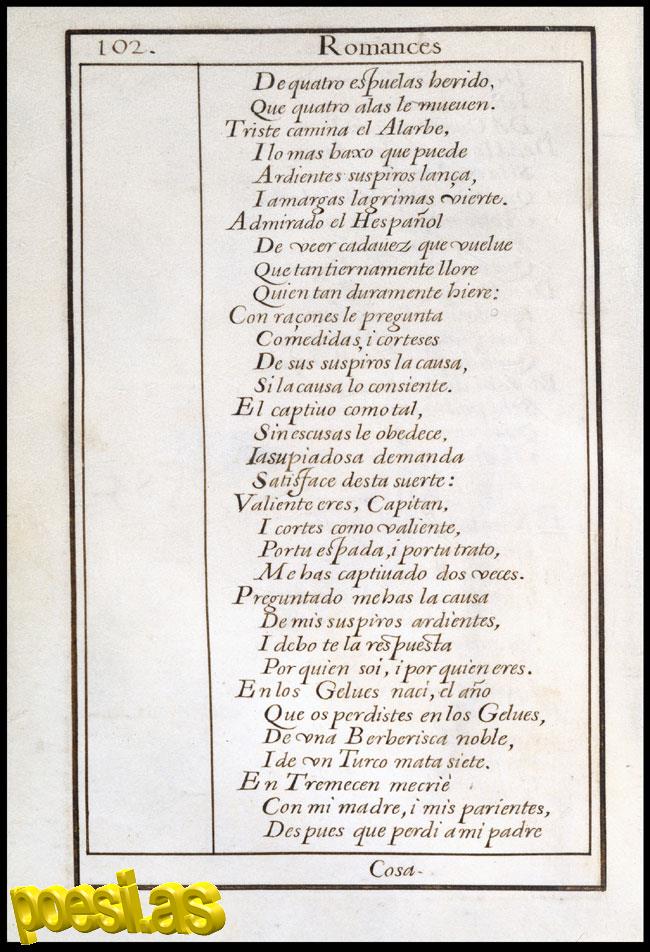 102.
Romances
De quatro espuelas herido,
Que quatro alas le mueuen.
Triste camina el Alarbe,
I lo mas baxo que puede
Ardientes suspiros lança,
I amargas lagrimas vierte.
Admirado el Hespañol
De veer cada uez que vuelue
Que tan tiernamente llore
Quien tan duramente hiere:
Con raçones le pregunta
Comedidas, i corteses
De sus suspiros la causa,
Si la causa lo consiente.
El captiuo como tal,
Sin escusas le obedece,
I a su piadosa demanda
Satisface desta suerte:
Valiente eres, Capitan,
I cortes como valiente,
Por tu espada, i por tu trato,
Me has captiuado dos veces.
Preguntado me has la causa
De mis suspiros ardientes,
I debo te la respuesta
Por quien soi, i por quien eres.
En los Gelues naci, el año
Que os perdistes en los Gelues,
De vna Berberisca noble,
I de vn Turco mata siete.
En Tremecen me criè
Con mi madre, i mis parientes,
Despues que perdi a mi padre
Cosa-
poesi.as